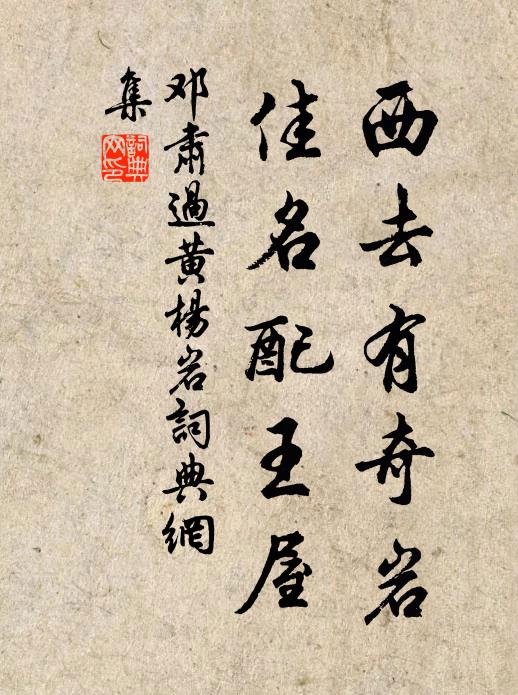 西去有奇岩
佳名配王屋
邓肃過黄楊岩詞典網
集
詞典
网印